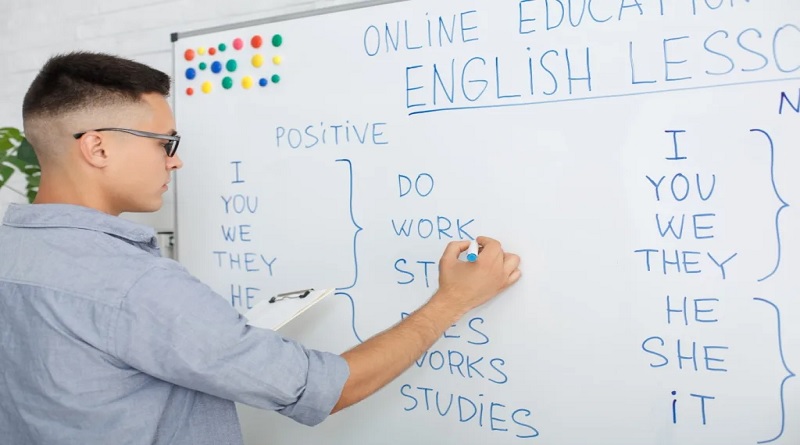 ONLINE EDUCATION
ENGLISH LESSO
POSITIVE
I
YOU
WE
THEY
HE
DO
WORK
ST
DOES
WORKS
STUDIES
N
I
YOU
WE
THEY
HE
SHE
iT